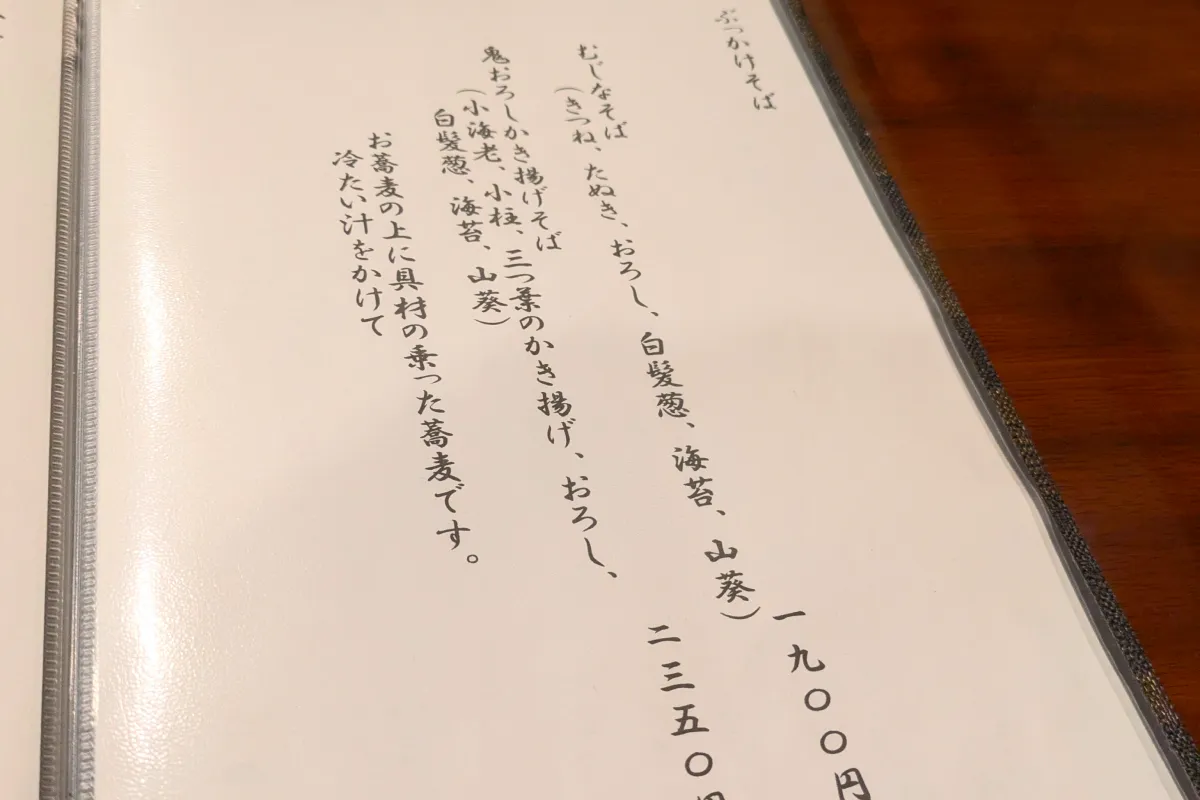 ぶっかけそば
むじなそば
(きつね、たぬき、おろし、白髪葱、海苔、山葵)
一九〇〇円
鬼おろしかき揚げそば
(小海老、小柱、三つ葉のかき揚げ、おろし、
白髪葱、海苔、山葵)
二三五〇円
お蕎麦の上に具材の乗った蕎麦です。
冷たい汁をかけて